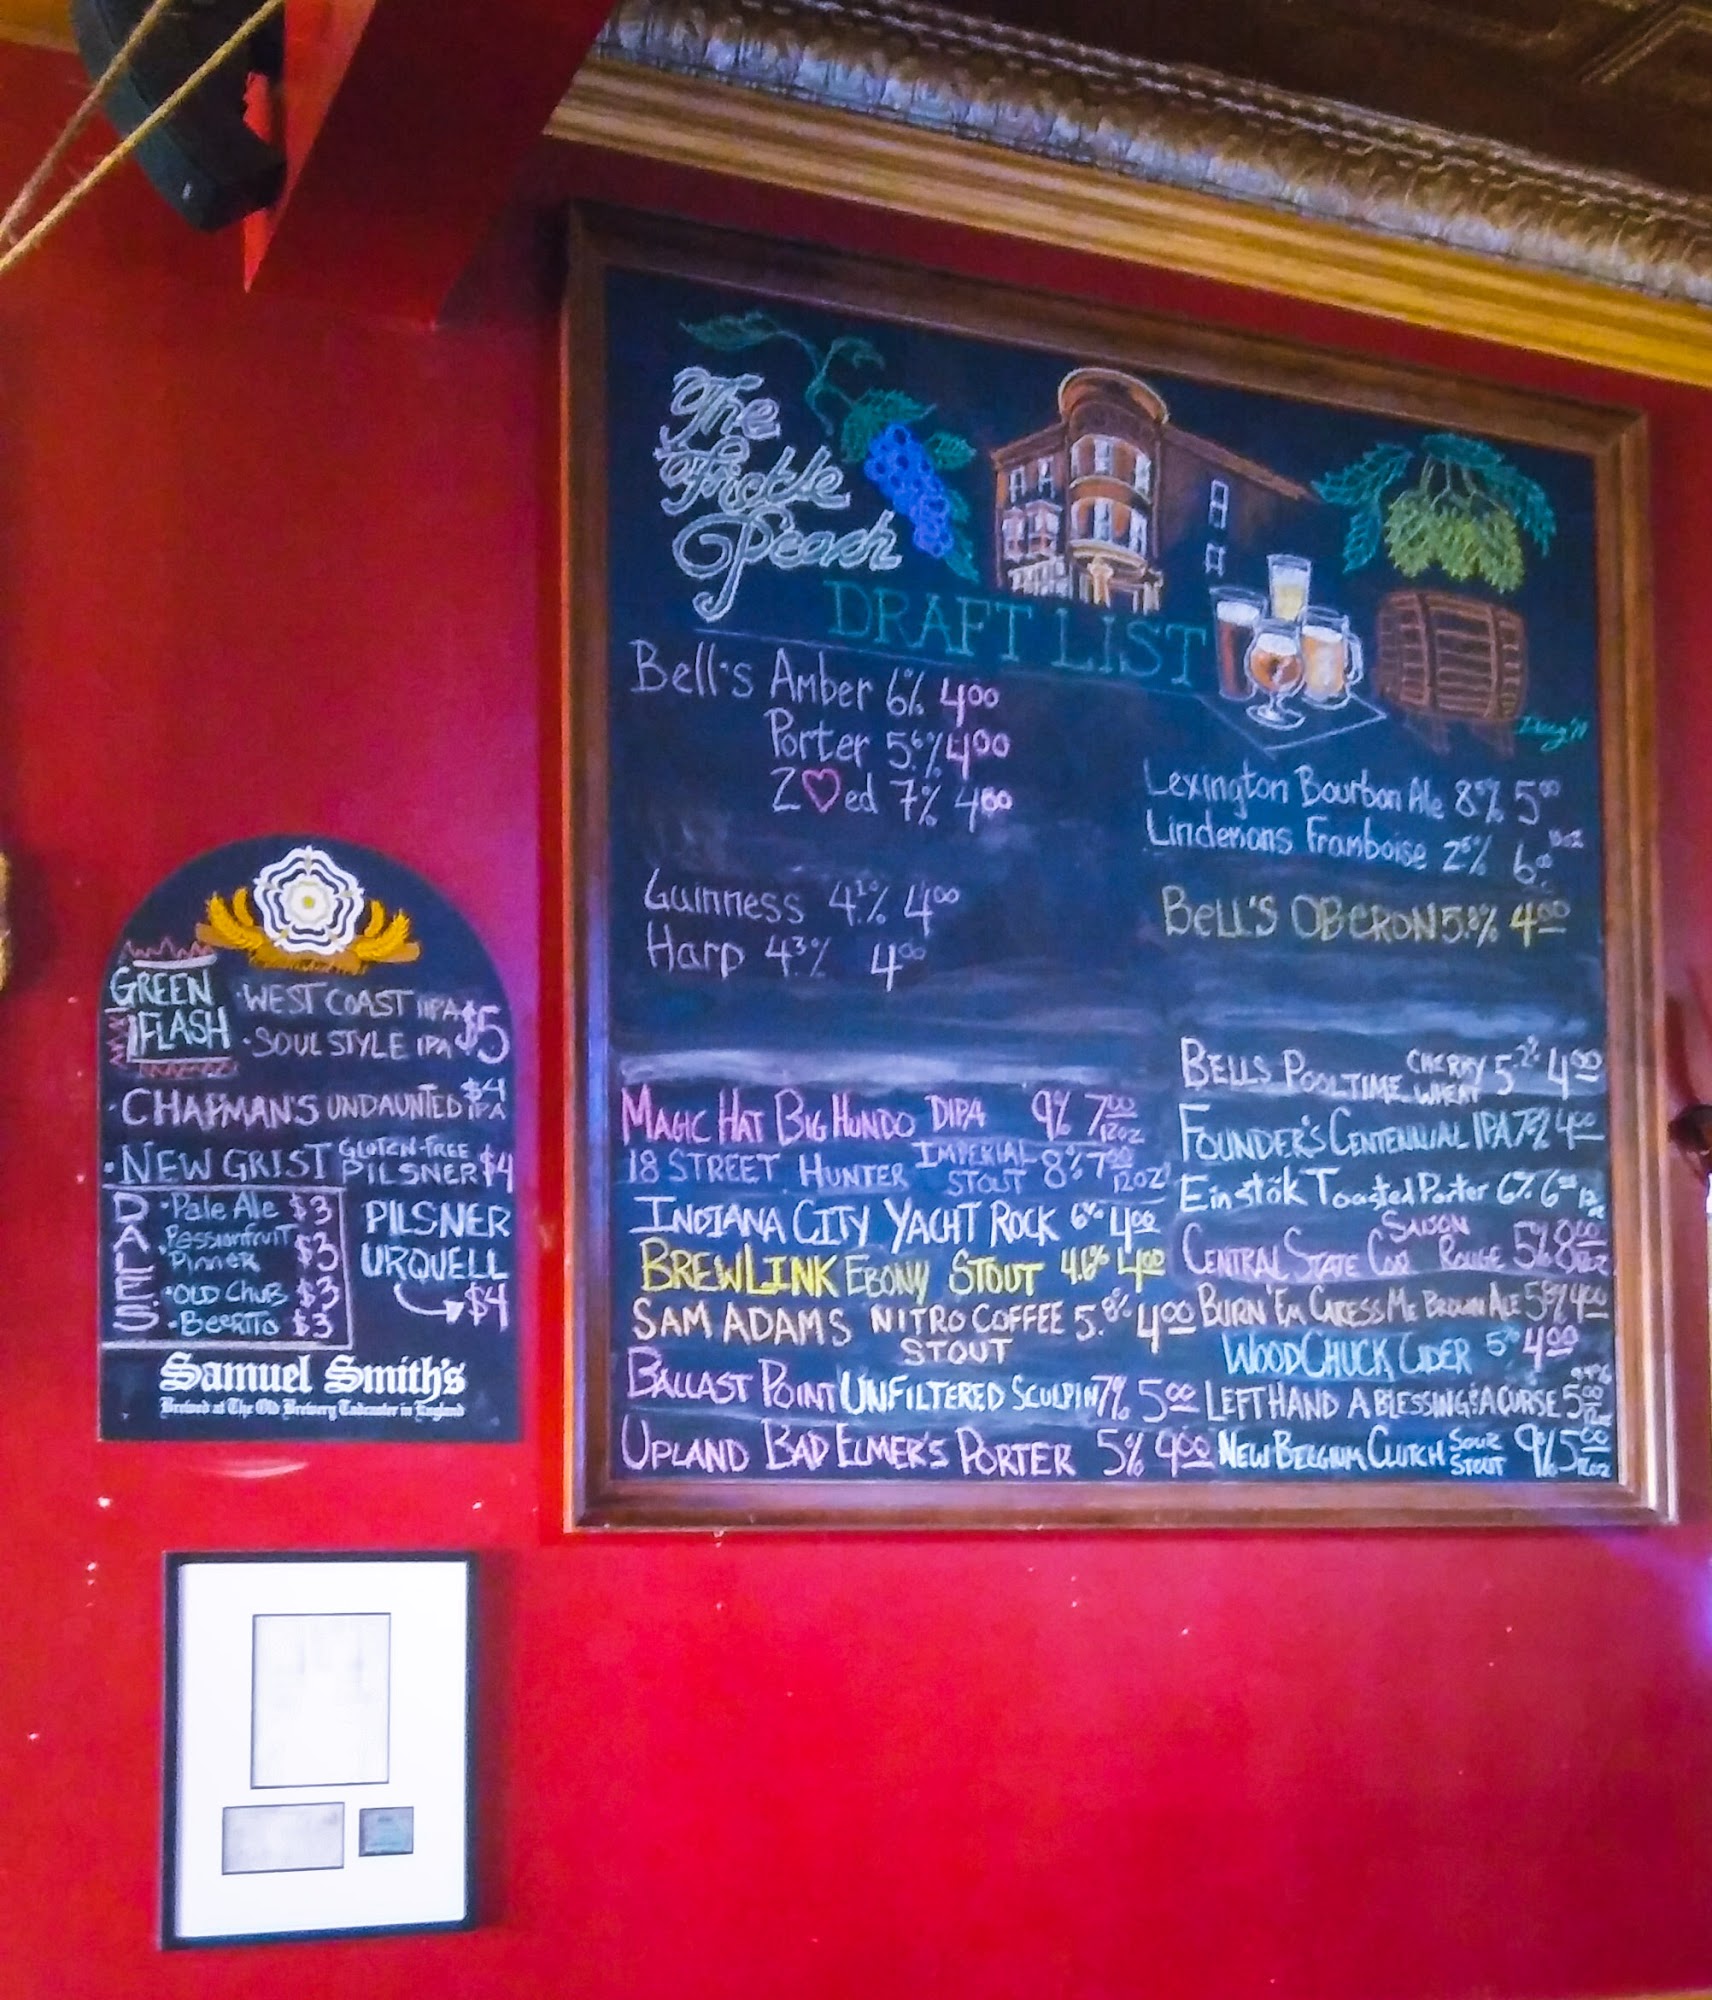 The
Knickle
Peach
DRAFT LIST
Bell's Amber 6% 4.00
Porter 5.6% 4.00
2♡ed 7% 4.00
Guinness 4.1% 4.00
Harp 4.3% 4.00
MAGIC HAT BIG HUNDO DIPA 9% 7.00 12oz
18 STREET HUNTER IMPERIAL STOUT 8% 7.00 12oz
INDIANA CITY YACHT ROCK 6% 4.00
BREWLINK EBONY STOUT 4.6% 4.00
SAM ADAMS NITRO COFFEE STOUT 5.8% 4.00
BALLAST POINT UNFILTERED SCULPIN 7% 5.00
UPLAND BAD ELMER'S PORTER 5% 4.00
Lexington Bourbon Ale 8% 5.00
Lindemans Framboise 2.5% 6.00 10oz
BELL'S OBERON 5.8% 4.00
BELLS POOLTIME CHERRY WHEAT 5.2% 4.00
FOUNDER'S CENTENNIAL IPA 7% 4.00
Einstök Toasted Porter 6% 6.00 12oz
CENTRAL STATE SAISON ROUGE 5% 8.00
BURN 'EM CARESS ME BROWN ALE 5.8% 4.00
WOODCHUCK CIDER 5% 4.00
LEFT HAND A BLESSING & A CURSE 5.00 12oz
NEW BELGIUM CLUTCH SOUR STOUT 9% 5.00 12oz
GREEN FLASH
·WEST COAST IIPA $5
·SOUL STYLE IPA
·CHAPMAN'S UNDAUNTED IPA $4
·NEW GRIST GLUTEN-FREE PILSNER $4
DALE'S
·Pale Ale $3
·Passionfruit Pinner $3
·OLD CHUB $3
·BEERITO $3
PILSNER
URQUELL
$4
Samuel Smith's
Brewed at The Old Brewery Tadcaster in England